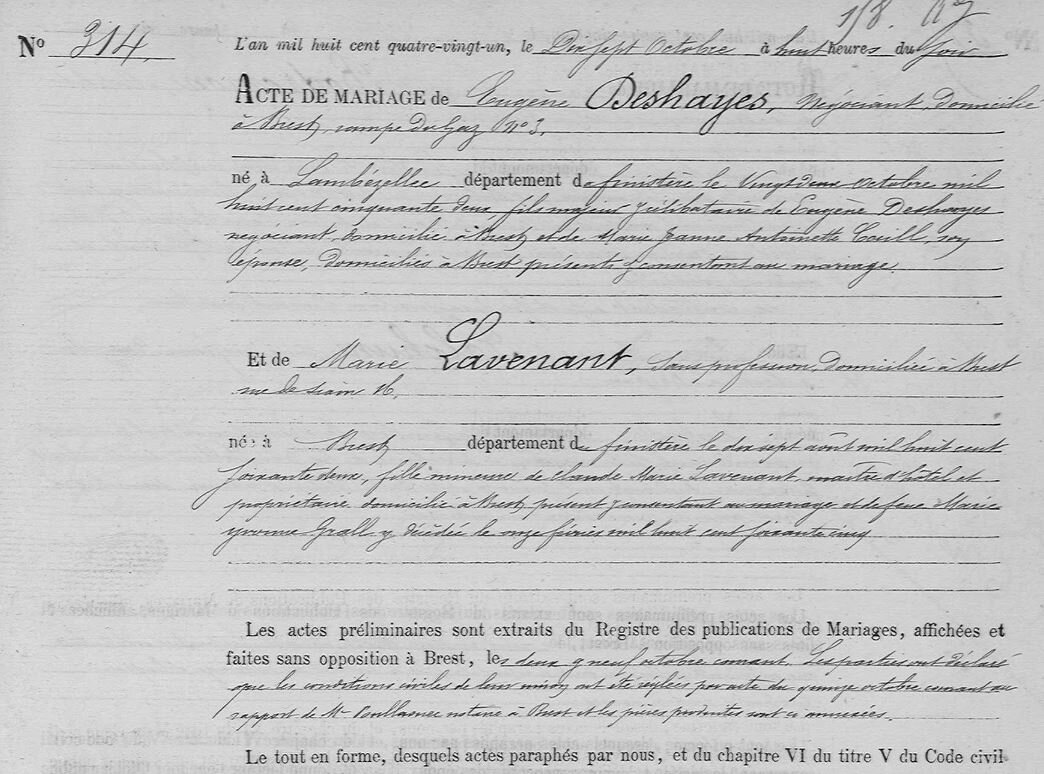 1/8.
No 314.
L'an mil huit cent quatre-vingt-un, le Dix sept Octobre à huit heures du soir
ACTE DE MARIAGE de Eugène Deshayes, négociant, domicilié
à Brest, rampe du Gaz No 3,
né à Lambézellec département d finistère le Vingt deux octobre mil
huit cent cinquante deux, fils majeur célibataire de Eugène Deshayes
négociant, domicilié à Brest et de Marie Jeanne Antoinette son
épouse, domiciliés à Brest présents & consentant au mariage.
Et de Marie Lavenant, sans profession, domiciliée à Brest
rue de Siam 16,
né à Brest département d finistère le dix sept août mil huit cent
soixante deux, fille mineure de claude Marie Lavenant, maître d'hôtel et
propriétaire domicilié à Brest présent & consentant au mariage et de feue Marie
yvonne Grall y décédée le onze février mil huit cent soixante cinq
Les actes préliminaires sont extraits du Registre des publications de Mariages, affichées et
faites sans opposition à Brest, les deux & neuf octobre courant. Les parties ont déclaré
que les conditions civiles de leur union ont été réglées par acte du quinze octobre courant au
rapport de Me notaire à Brest et les pièces produites sont ci annexées.
Le tout en forme, desquels actes paraphés par nous, et du chapitre VI du titre V du Code civil